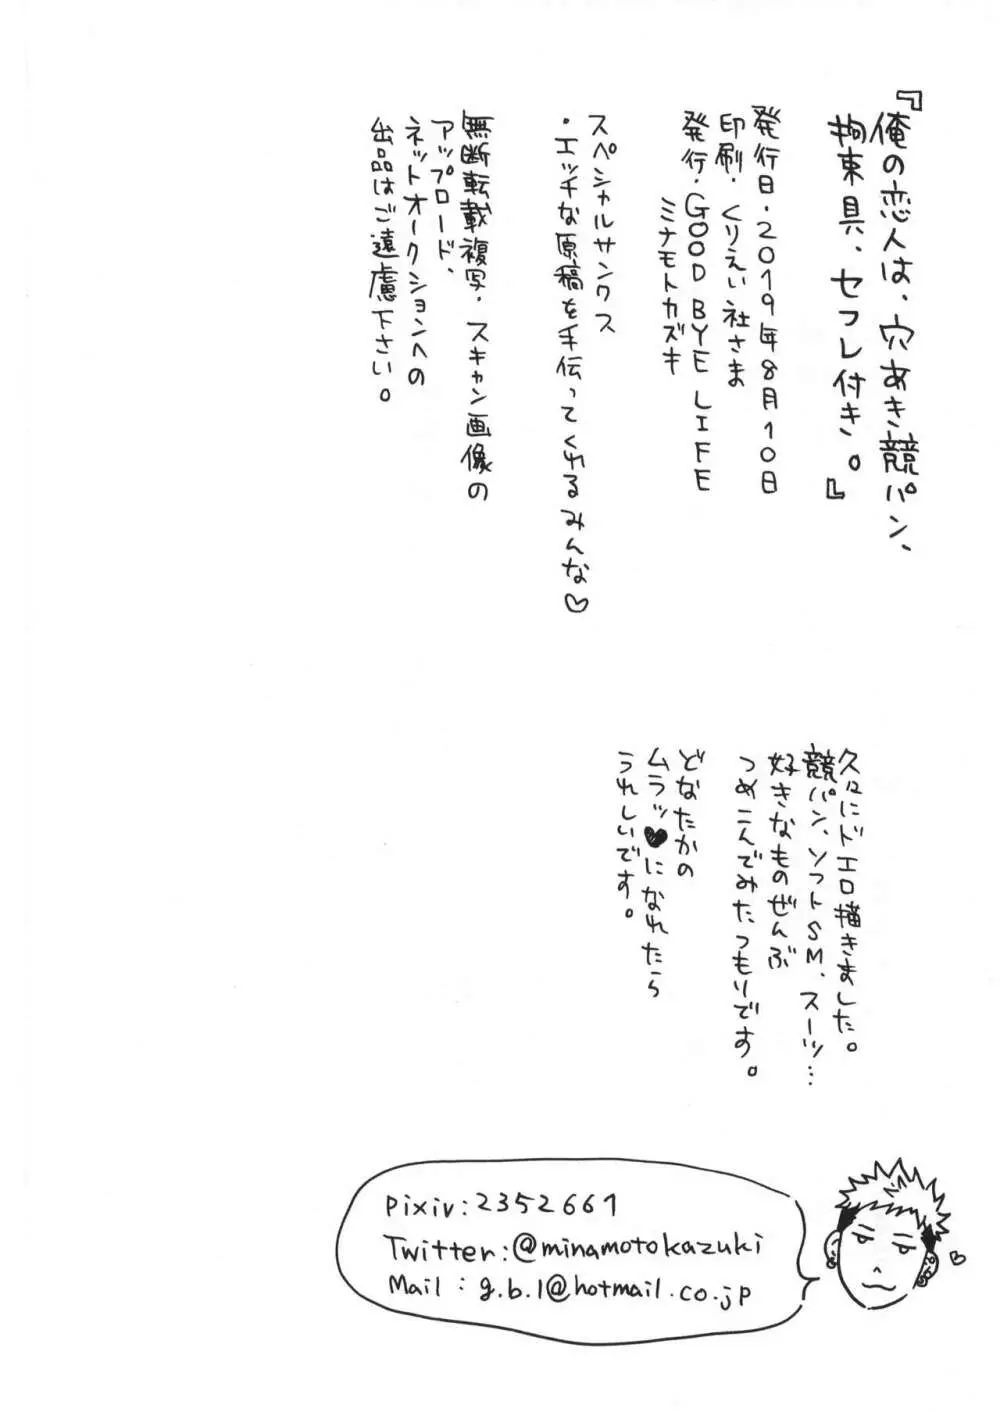 『俺の恋人は、穴あき競パン、
拘束具、セフレ付き。』
発行日・2019年8月10日
印刷・くりえい社さま
発行・GOOD BYE LIFE
ミナモトカズキ
スペシャルサンクス
・エッチな原稿を手伝ってくれるみんな♡
無断転載複写・スキャン画像の
アップロード、
ネットオークションへの
出品はご遠慮下さい。
久々にドエロ描きました。
競パン、ソフトSM、スーツ…
好きなものぜんぶ
つめこんでみたつもりです。
どなたかの
ムラッ♥になれたら
うれしいです。
pixiv:2352661
Twitter:@minamotokazuki
Mail:g.b.l@hotmail.co.jp